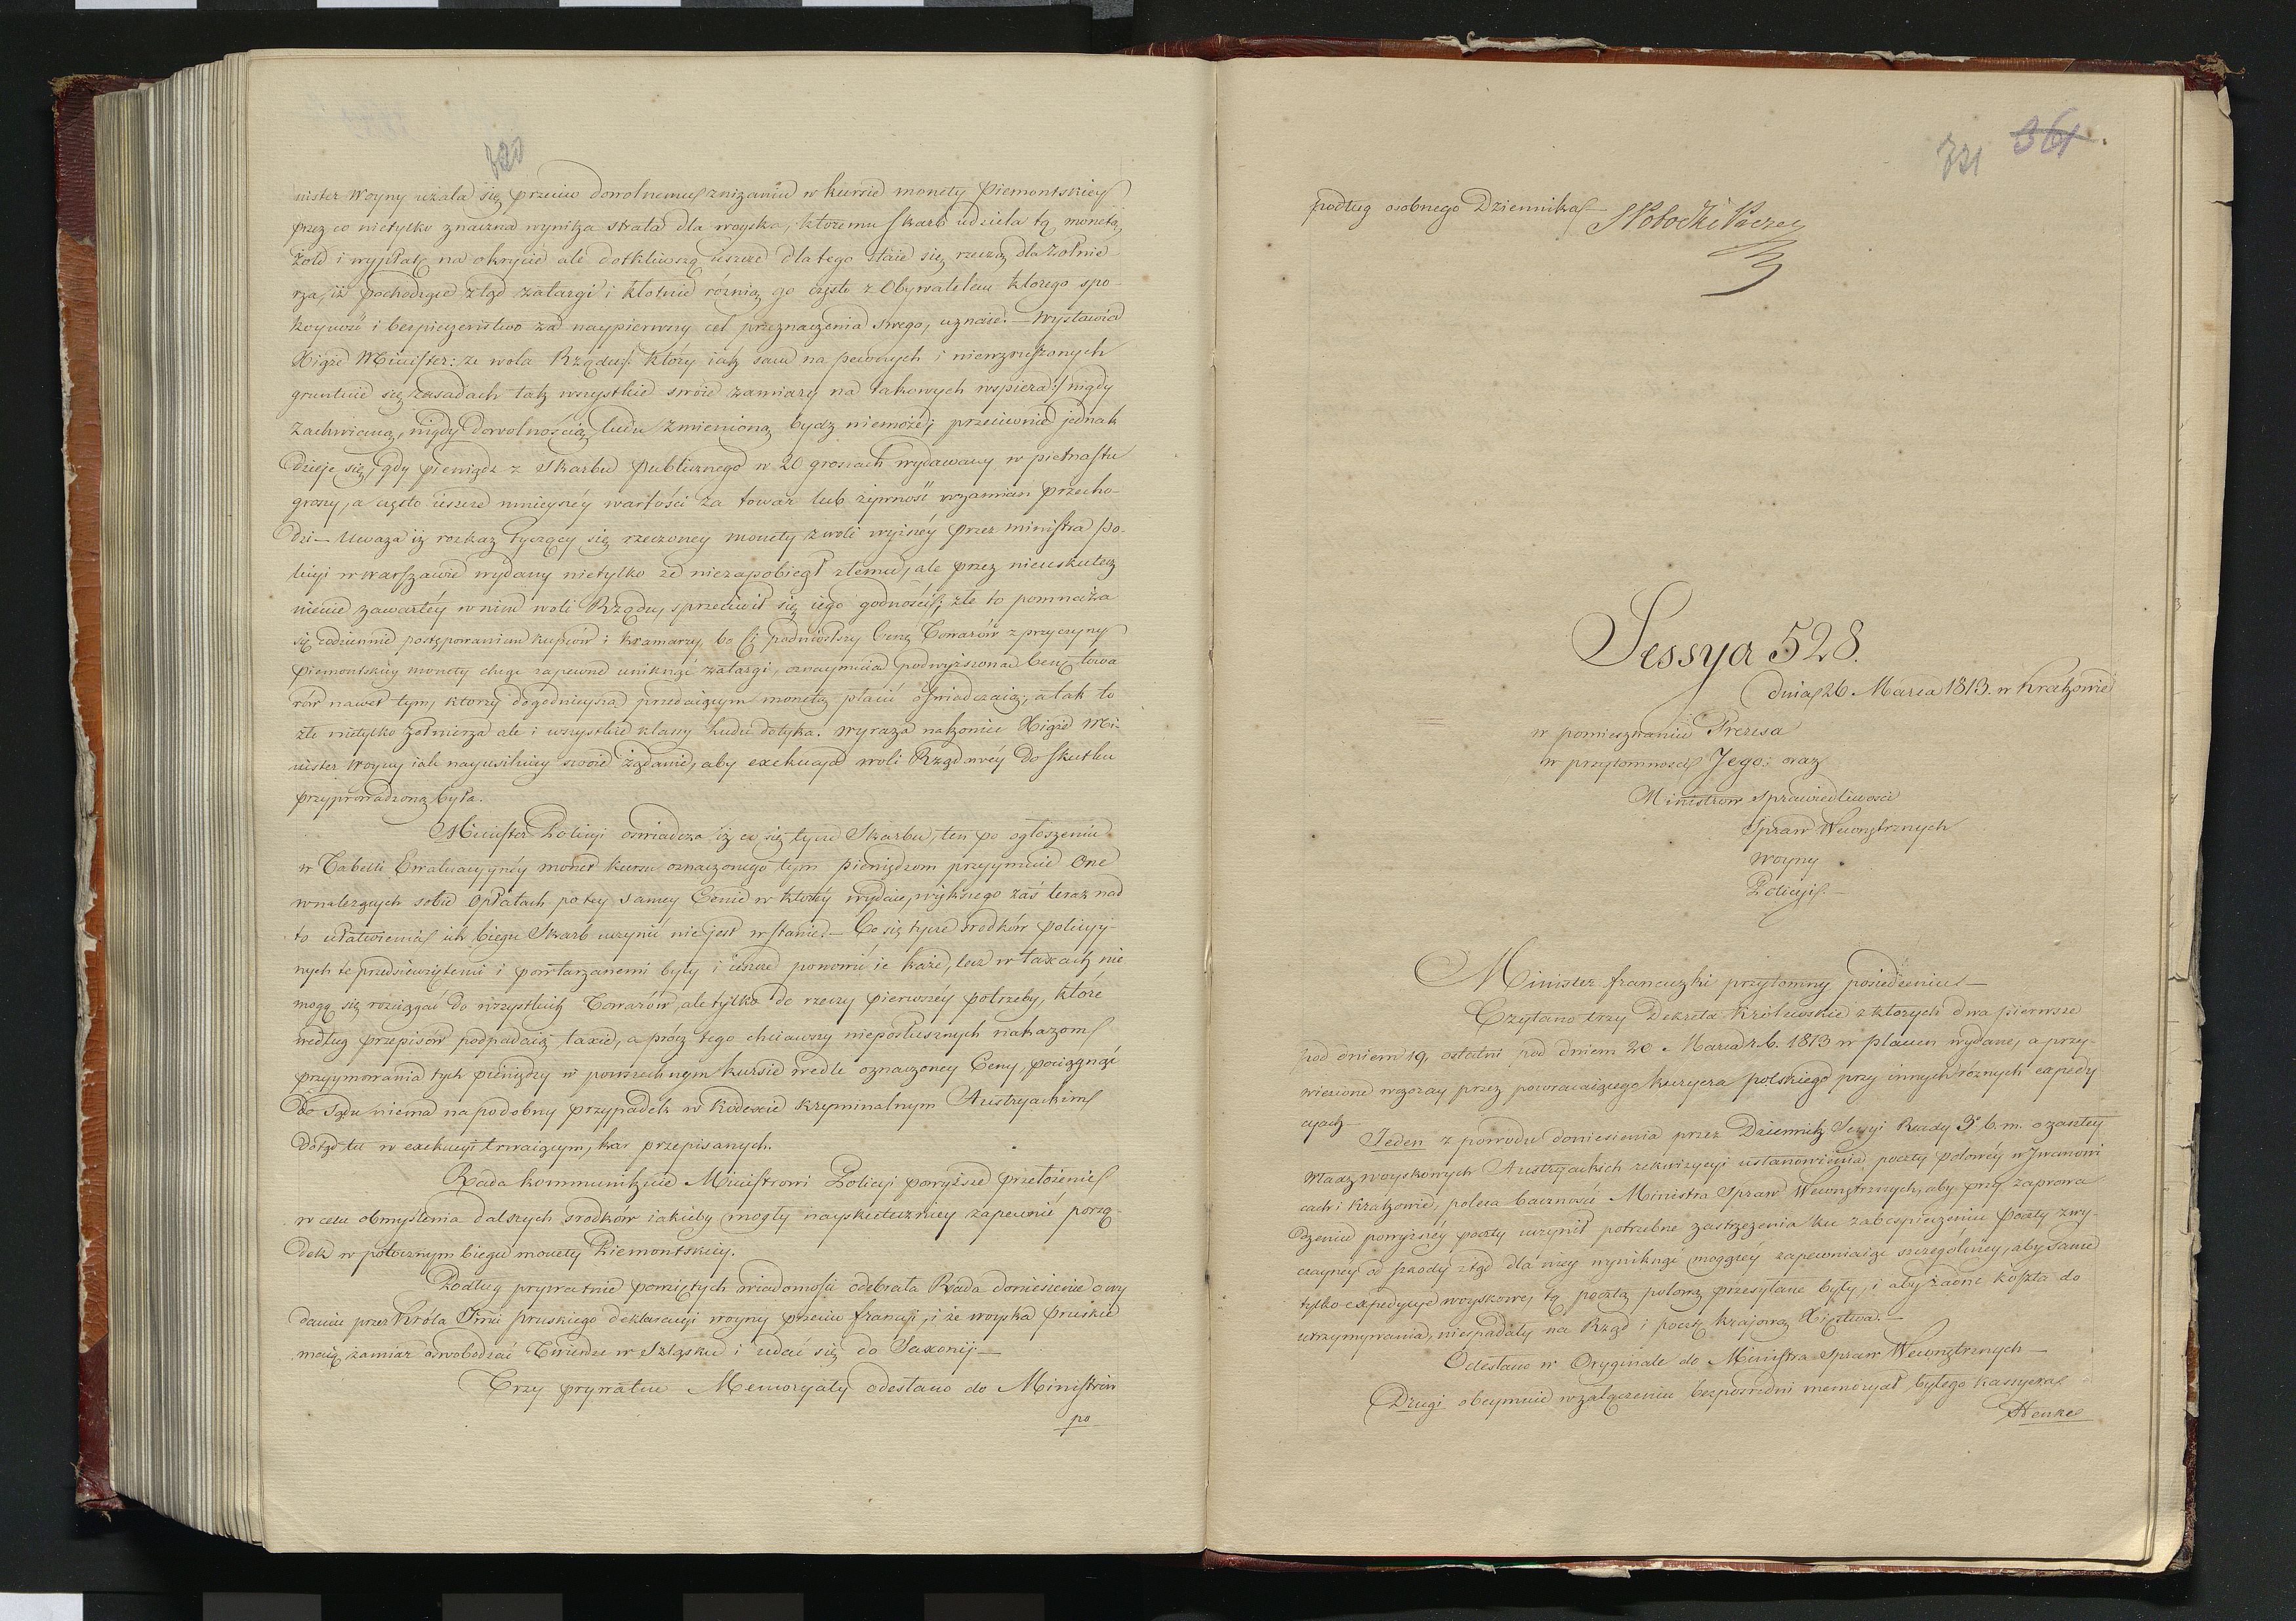 720
nister Woyny użala się przeciw dowolnemu zniżaniu w kursie monety Piemontskiey
przez co nietylko znaczna wynika strata dla woyska, któremu Skarb udziela tę monetę,
żołd i wypłatę na okrycie ale dotkliwszą ieszcze dlatego staie się rzeczą dla żołnie-
rza, iż pochodzące ztąd zatargi i kłótnie różnią go często z Obywatelem którego spo-
koyność i bespieczeństwo za naypierwszy cel przeznaczenia swego, uznaie. — Wystawia
Xiąże Minister: że wola Rządu /: który iak sam na pewnych i niewzruszonych
gruntuie się zasadach tak wszystkie swoie zamiary na takowych wspiera :/ nigdy
zachwianą, nigdy dowolnością ludu zmienioną bydź niemoże; przeciwnie jednak
dzieje się, gdy pieniądz z Skarbu publicznego w 20 groszach wydawany, w piętnastu
groszy, a często ieszcze mnieyszéy wartości za towar lub żywność wzamian przecho-
dzi — Uważa iż rozkaz tyczący się rzeczoney monety z woli wyższéy przez ministra Po-
licyi w Warszawie wydany nietylko że niezapobiegł złemu, ale przez nieuskutecz
nienie zawartéy w nim woli Rządu, sprzeciwił się iego godności; złe to pomnaża
się codziennie postępowaniem kupców i kramarzy, bo Ci podniosłszy Cenę Towarów z przyczyny
Piemontskiey monety chcąc zapewne uniknąć zatargi, oznaymuią podwyższoną cenę towa
rów nawet tym, którzy dogodnieyszą przedaiącym monetą płacić oświadczaią; a tak to
złe nietylko żołnierza ale i wszystkie klassy Ludu dotyka. Wyraża nakoniec Xiąże Mi-
nister Woyny iak nayusilniey swoie żądanie, aby exekucya woli Rządowéy do skutku
przyprowadzoną była.
Minister Policyi oświadcza iż co się tycze Skarbu, ten po ogłoszeniu
w Tabelli Ewaluacyynéy monet kursu oznaczonego tym pieniędzom przyymuie One
w należących sobie Opłatach po tey samey Cenie w któréy wydaie, większego zaś teraz nad
to ułatwienia ich biegu Skarb uczynić nie jest w stanie. — Co się tycze środków policyy-
nych te przedsięwziętemi i powtarzanemi były i ieszcze ponowić ie każe, lecz w taxach nie
mogą się rozciągać do wszystkich Towarów, ale tylko do rzeczy pierwszéy potrzeby, które
według przepisów podpadaią taxie, a prócz tego chciawszy nieposłusznych nakazom
przyymowania tych pieniędzy w powszechnym kursie wedle oznaczoney Ceny, pociągnąć
do Sądu niema na podobny przypadek w Kodexie Kryminalnym Austryackim
dotąd tu w exekucyi trwaiącym, kar przepisanych.
Rada kommunikuie Ministrowi Policyi powyższe przełożenie
w celu obmyślenia dalszych środków iakieby mogły nayskuteczniey zapewnić porzą-
dek w potocznym biegu monety Piemontskiey.
Podług prywatnie powziętych wiadomości odebrała Rada doniesienie o wy
daniu przez Króla Jmci Pruskiego deklaracyi woyny przeciw francyi, i że woyska pruskie
maią zamiar oswobodzić Twierdze w Szląsku i udać się do Saxonij —
Trzy prywatne Memoryały odesłano do Ministrów
po
361.
721
podług osobnego Dziennika —
Sessya 528.
dnia 26 Marca 1813. w Krakowie
w pomieszkaniu Prezesa
w przytomności Jego: oraz
Ministrow Sprawiedliwości
Spraw Wewnętrznych
Woyny
Policyi. —
Minister francuzki przytomny posiedzeniu —
Czytano trzy Dekreta Królewskie z których dwa pierwsze
pod dniem 19, ostatni pod dniem 20 Marca r. b. 1813 w Plauen wydane, a przy-
wiezione wczoray przez powracaiącego kuryera polskiego przy innych różnych expedy
cyach —
Jeden z powodu doniesienia przez Dziennik Sessyi Rady 3 b. m. o zaszłey
władz woyskowych Austryackich rekwizycyi ustanowienia poczty polowéy w Iwanowi
cach i Krakowie, poleca baczność Ministra Spraw Wewnętrznych, aby przy zaprowa
dzeniu powyższéy poczty uczynił potrzebne zastrzeżenia ku zabespieczeniu poczty zwy-
czayney od szkody ztąd dla niey wyniknąć mogącéy zapewniaiąc szczególniey, aby same
tylko expedycye woyskowe tą pocztą polową przesyłane były, i aby żadne koszta do
utrzymywania, niespadały na Rząd i pocztę krajową Xięstwa. —
Odesłano w Oryginale do Ministra Spraw Wewnętrznych —
Drugi obeymuie w załączeniu bezpośredni memoryał byłego kassyera
Henke